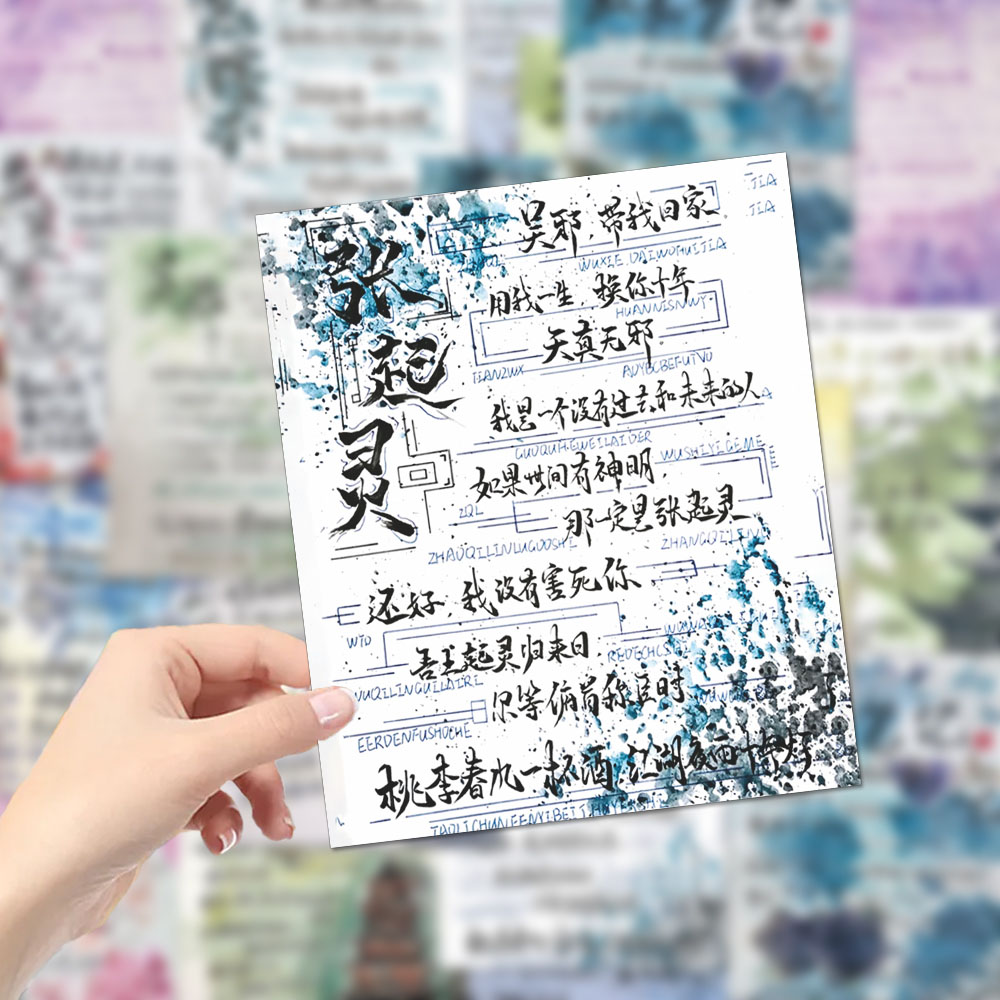 张起灵
JIA
JIA
吴邪,带我回家
WUXIE.DAIWOHUIJIA
用我一生,换你十年
HUANNISNWY
天真无邪
TIANZWX
我是一个没有过去和未来的人
如果世间有神明,
ZQL
那一定是张起灵
还好,我没有害死你
WTD
吾王起灵归来日
EERDENFUSHOCHE
桃李春风一杯酒,江湖夜雨十年灯